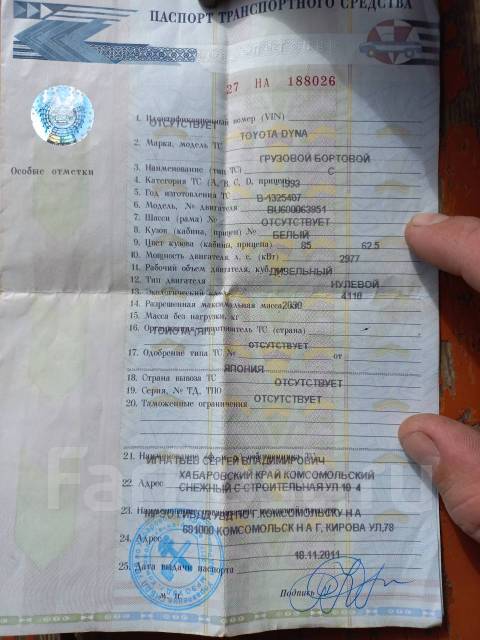 ПАСПОРТ ТРАНСПОРТНОГО СРЕДСТВА
27 НА 188026
1. Идентификационный номер (VIN)
ОТСУТСТВУЕТ
2. Марка, модель ТС TOYOTA DYNA
ГРУЗОВОЙ БОРТОВОЙ
3. Наименование (тип ТС)
4. Категория ТС (A, B, C, D, прицеп) C
5. Год изготовления ТС 1993
6. Модель, № двигателя B-1325407
7. Шасси (рама) № BU600063951
8. Кузов (кабина, прицеп) № ОТСУТСТВУЕТ
9. Цвет кузова (кабины, прицепа) БЕЛЫЙ
10. Мощность двигателя, л. с. (кВт) 85 62.5
11. Рабочий объем двигателя, куб. 2977
12. Тип двигателя ДИЗЕЛЬНЫЙ
13. Экологический НУЛЕВОЙ
14. Разрешенная максимальная масса 4110
15. Масса без нагрузки, кг 2030
16. Организация-изготовитель ТС (страна)
ОТСУТСТВУЕТ
17. Одобрение типа ТС № от
ЯПОНИЯ
18. Страна вывоза ТС
19. Серия, № ТД, ТПО ОТСУТСТВУЕТ
20. Таможенные ограничения ОТСУТСТВУЕТ
Особые отметки
21. Наименование
ИГНАТЬЕВ СЕРГЕЙ ВЛАДИМИРОВИЧ
22. Адрес ХАБАРОВСКИЙ КРАЙ КОМСОМОЛЬСКИЙ
СНЕЖНЫЙ С СТРОИТЕЛЬНАЯ УЛ 10 4
23. Наименование
УВД ПО Г.КОМСОМОЛЬСКУ Н А
24. Адрес 681000 КОМСОМОЛЬСК Н А Г, КИРОВА УЛ,78
25. Дата выдачи паспорта 18.11.2011
М. П. Подпись